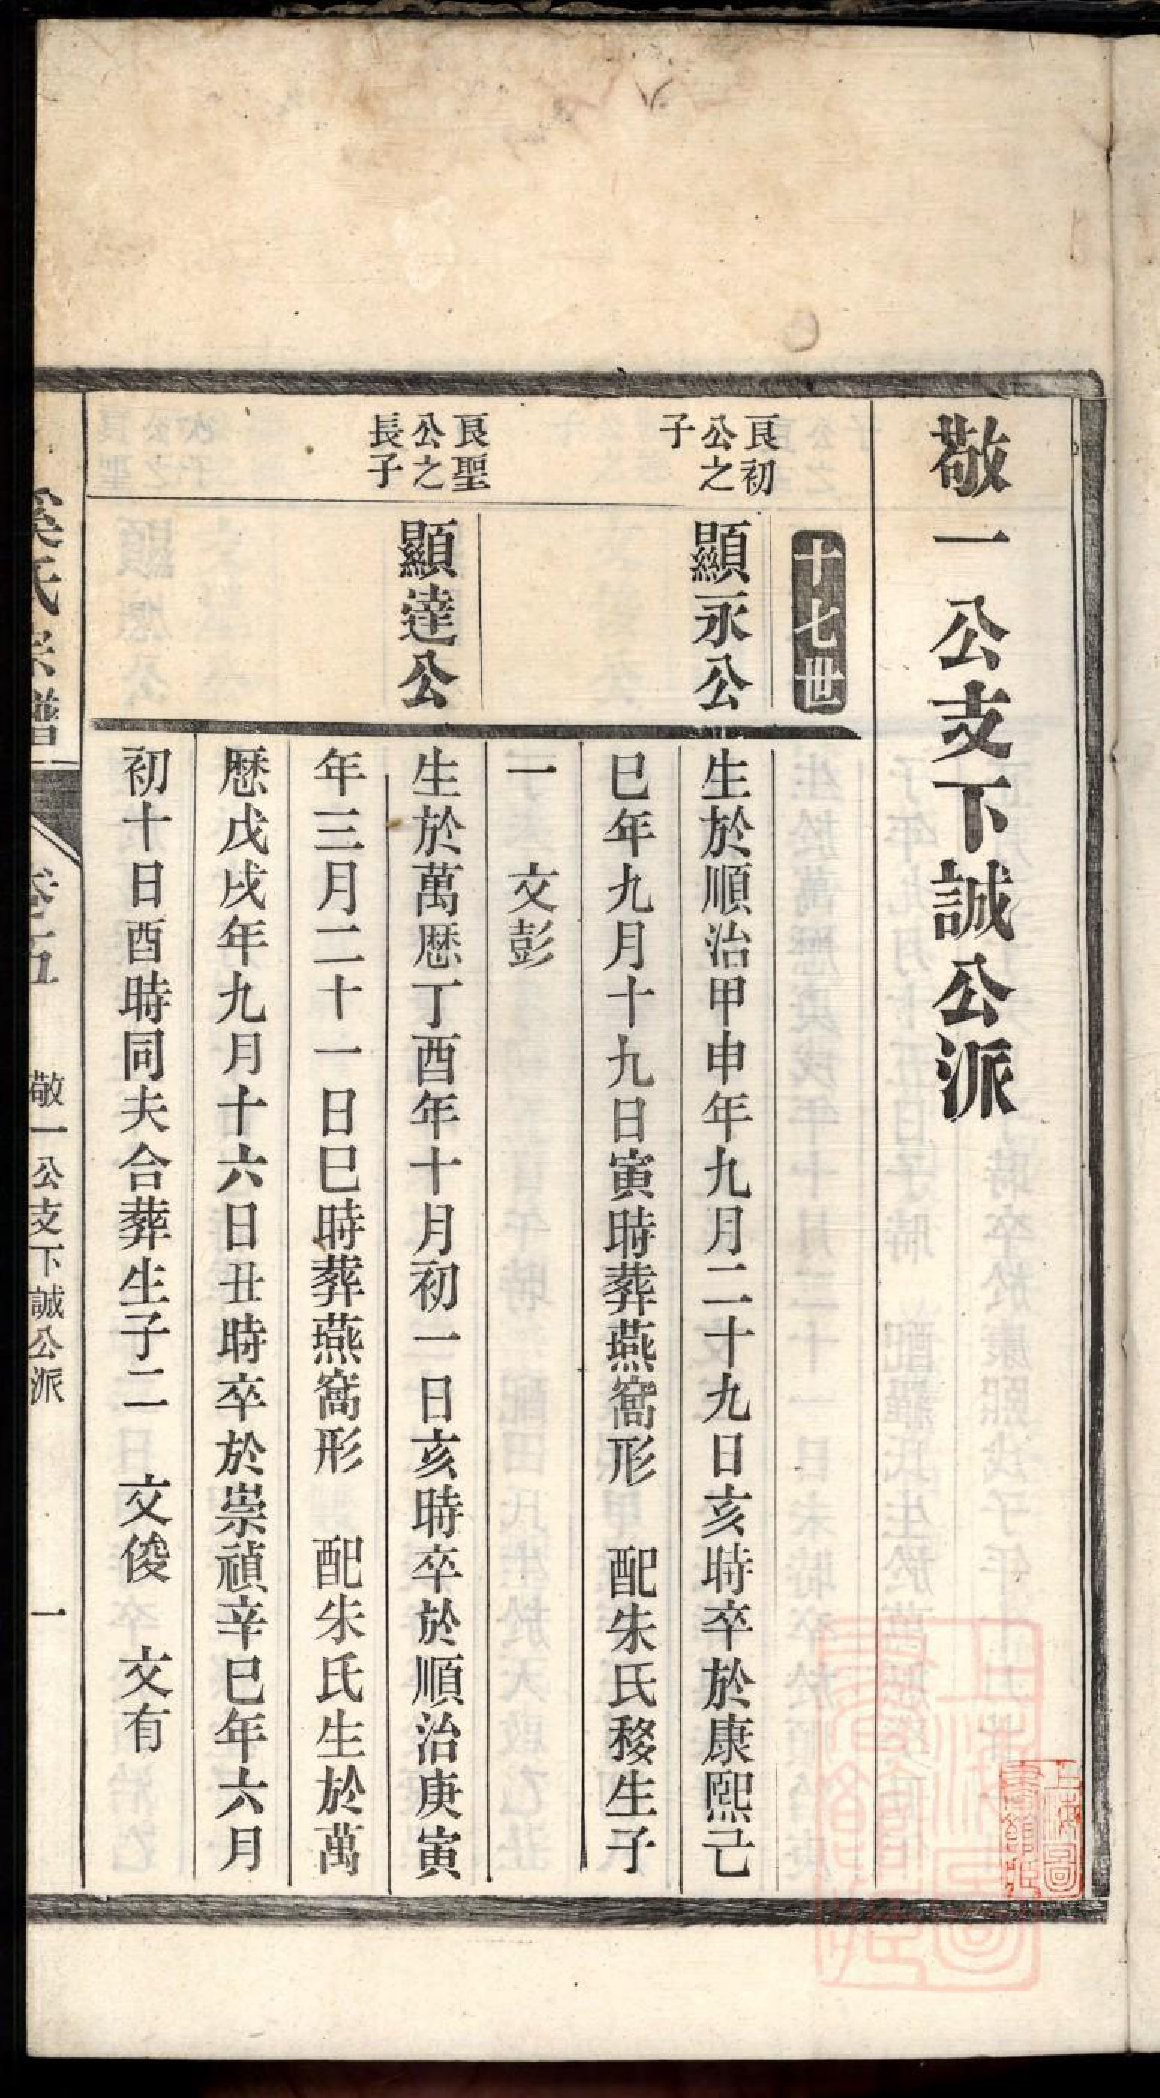 敬一公支下誠公派
十七世
良初
公之
子
顯永公
生於順治甲申年九月二十九日亥時卒於康熙己
巳年九月十九日寅時葬燕窩形 配朱氏移生子
一 文彭
良聖
公之
長子
顯達公
生於萬歷丁酉年十月初一日亥時卒於順治庚寅
年三月二十一日巳時葬燕窩形 配朱氏生於萬
歷戊戌年九月十六日丑時卒於崇禎辛巳年六月
初十日酉時同夫合葬生子二 文俊 文有
奚氏宗譜 卷五 敬一公支下誠公派 一
上海圖
書館藏